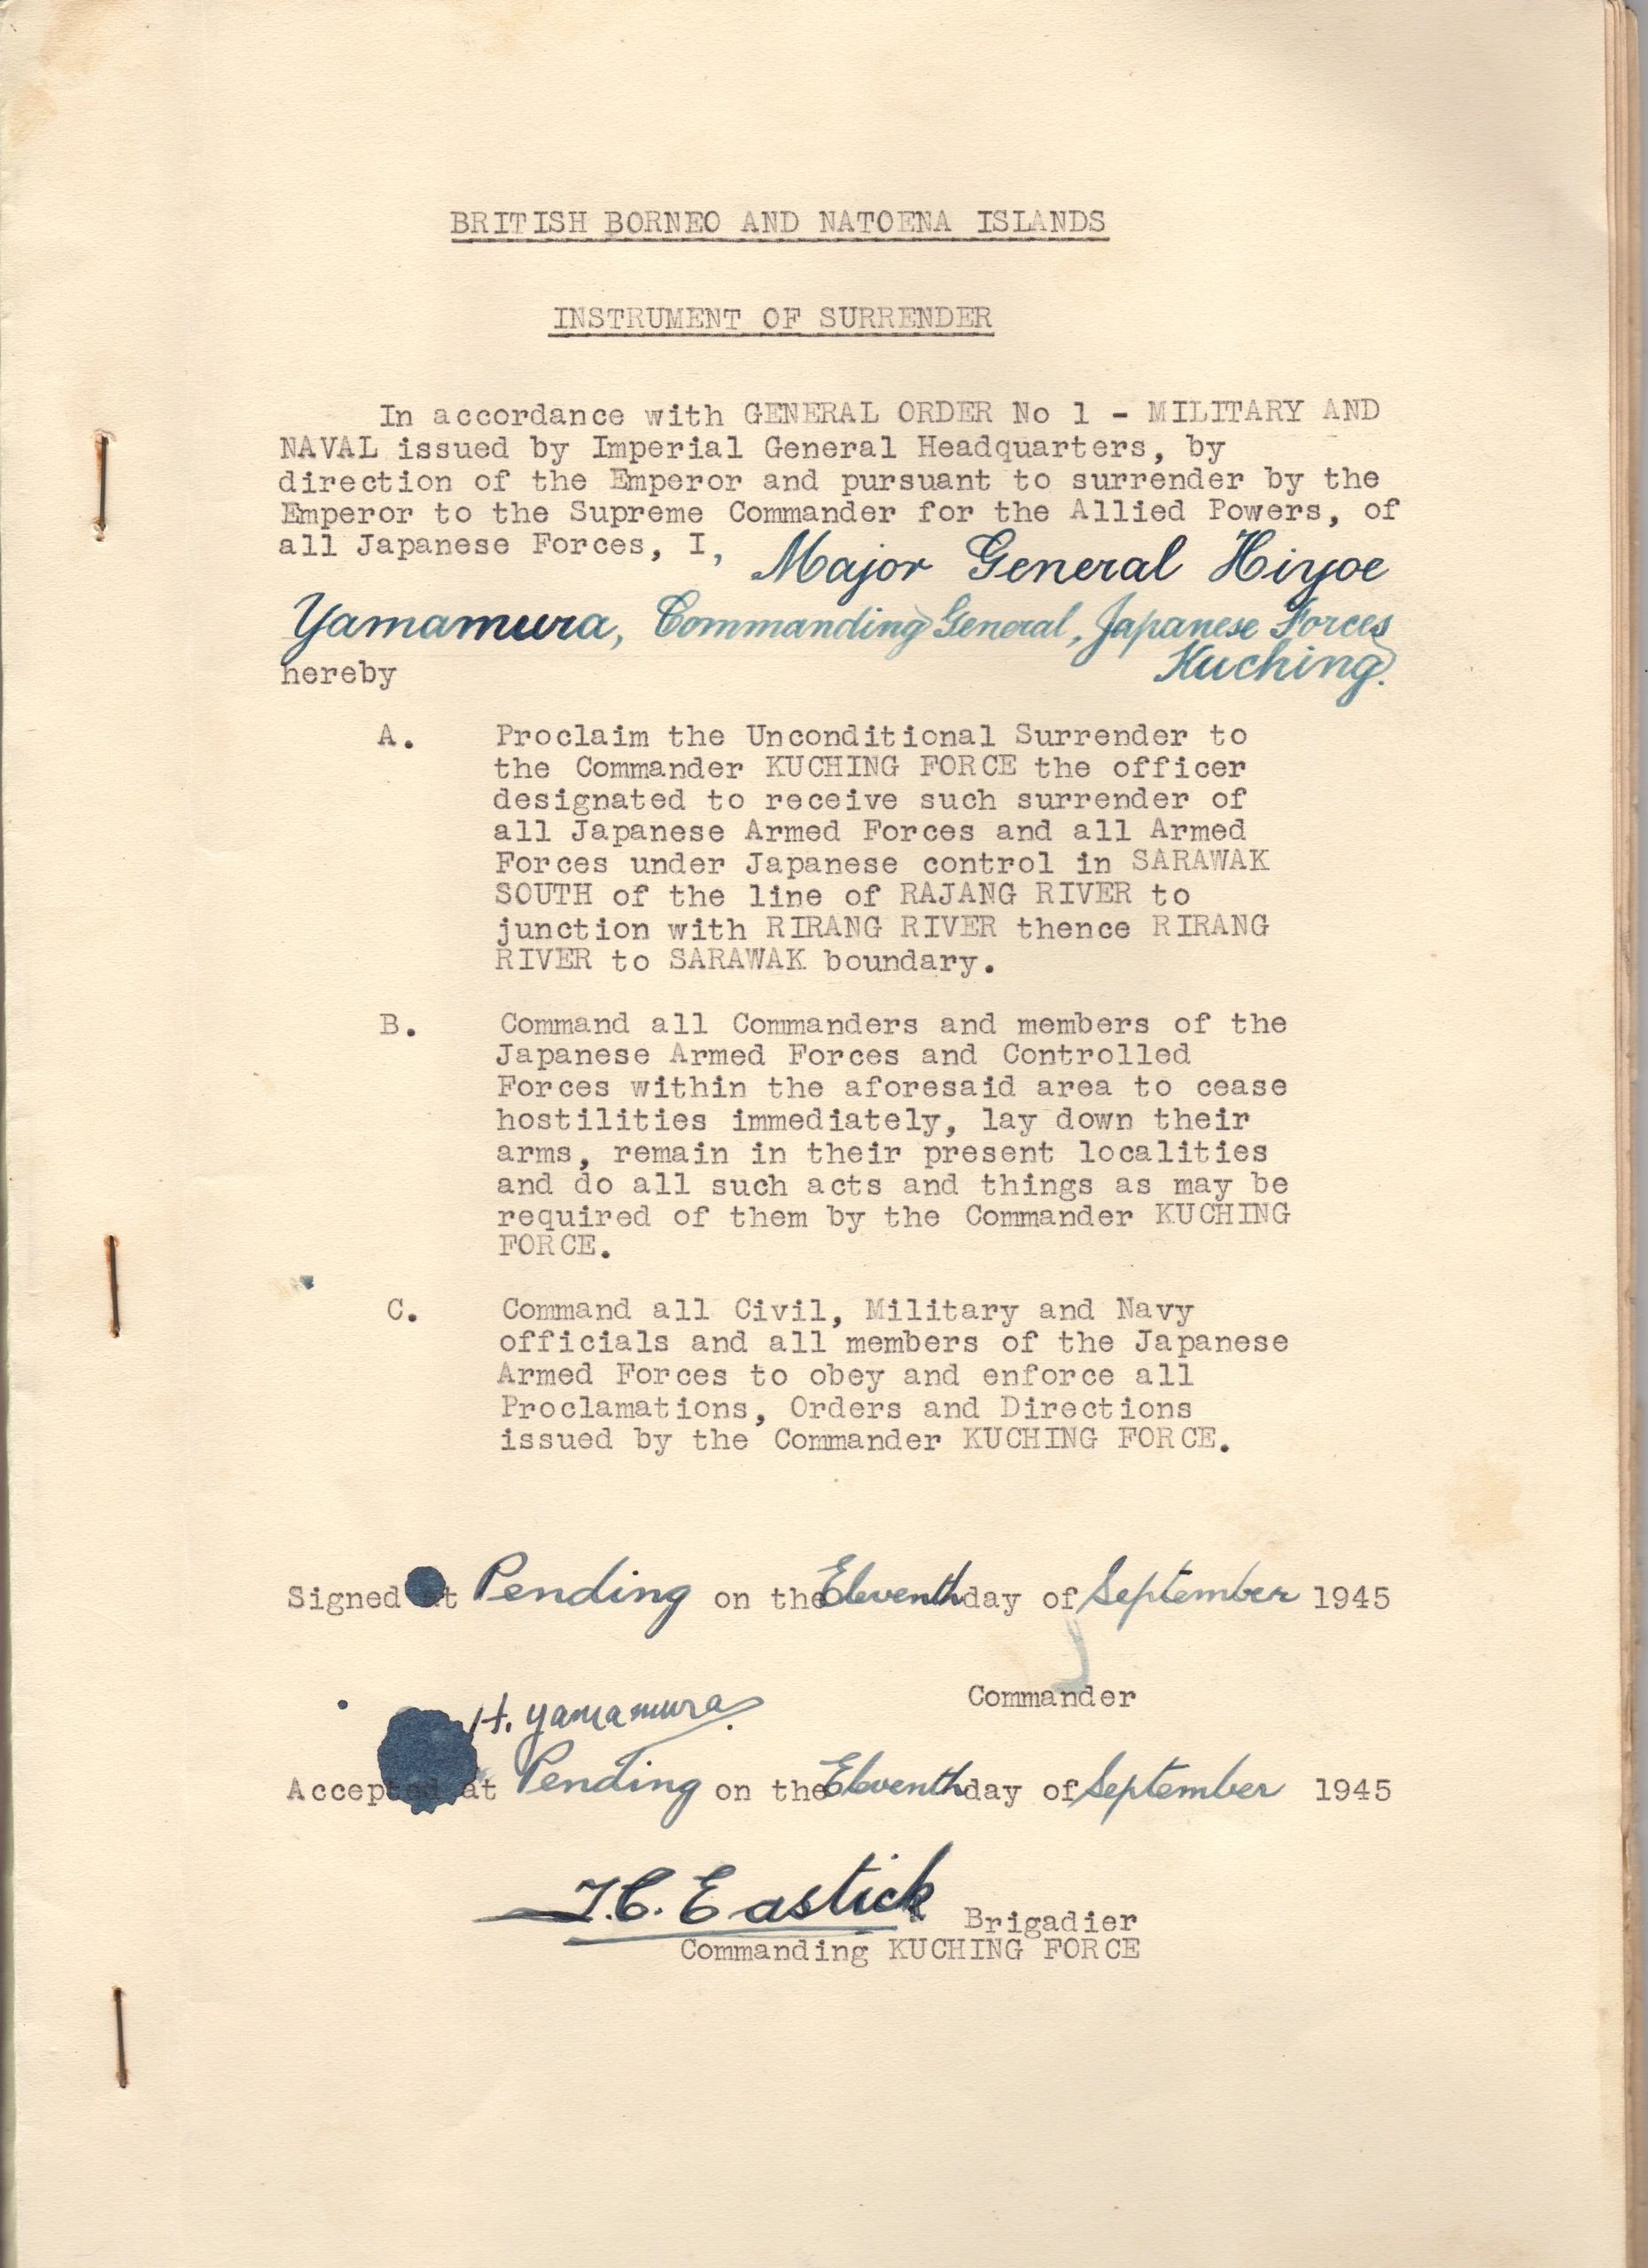 BRITISH BORNEO AND NATOENA ISLANDS
INSTRUMENT OF SURRENDER
In accordance with GENERAL ORDER No 1 - MILITARY AND
NAVAL issued by Imperial General Headquarters, by
direction of the Emperor and pursuant to surrender by the
Emperor to the Supreme Commander for the Allied Powers, of
all Japanese Forces, I, Major General Hiyoe
Yamamura, Commanding General, Japanese Forces
Kuching.
hereby
A. Proclaim the Unconditional Surrender to
the Commander KUCHING FORCE the officer
designated to receive such surrender of
all Japanese Armed Forces and all Armed
Forces under Japanese control in SARAWAK
SOUTH of the line of RAJANG RIVER to
junction with RIRANG RIVER thence RIRANG
RIVER to SARAWAK boundary.
B. Command all Commanders and members of the
Japanese Armed Forces and Controlled
Forces within the aforesaid area to cease
hostilities immediately, lay down their
arms, remain in their present localities
and do all such acts and things as may be
required of them by the Commander KUCHING
FORCE.
C. Command all Civil, Military and Navy
officials and all members of the Japanese
Armed Forces to obey and enforce all
Proclamations, Orders and Directions
issued by the Commander KUCHING FORCE.
Signed at Pending on the Eleventh day of September 1945
Commander
H. Yamamura
Accepted at Pending on the Eleventh day of September 1945
T.C. Eastick Brigadier
Commanding KUCHING FORCE